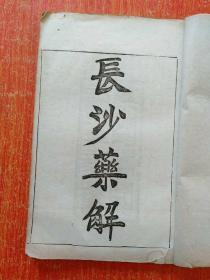 長沙藥解